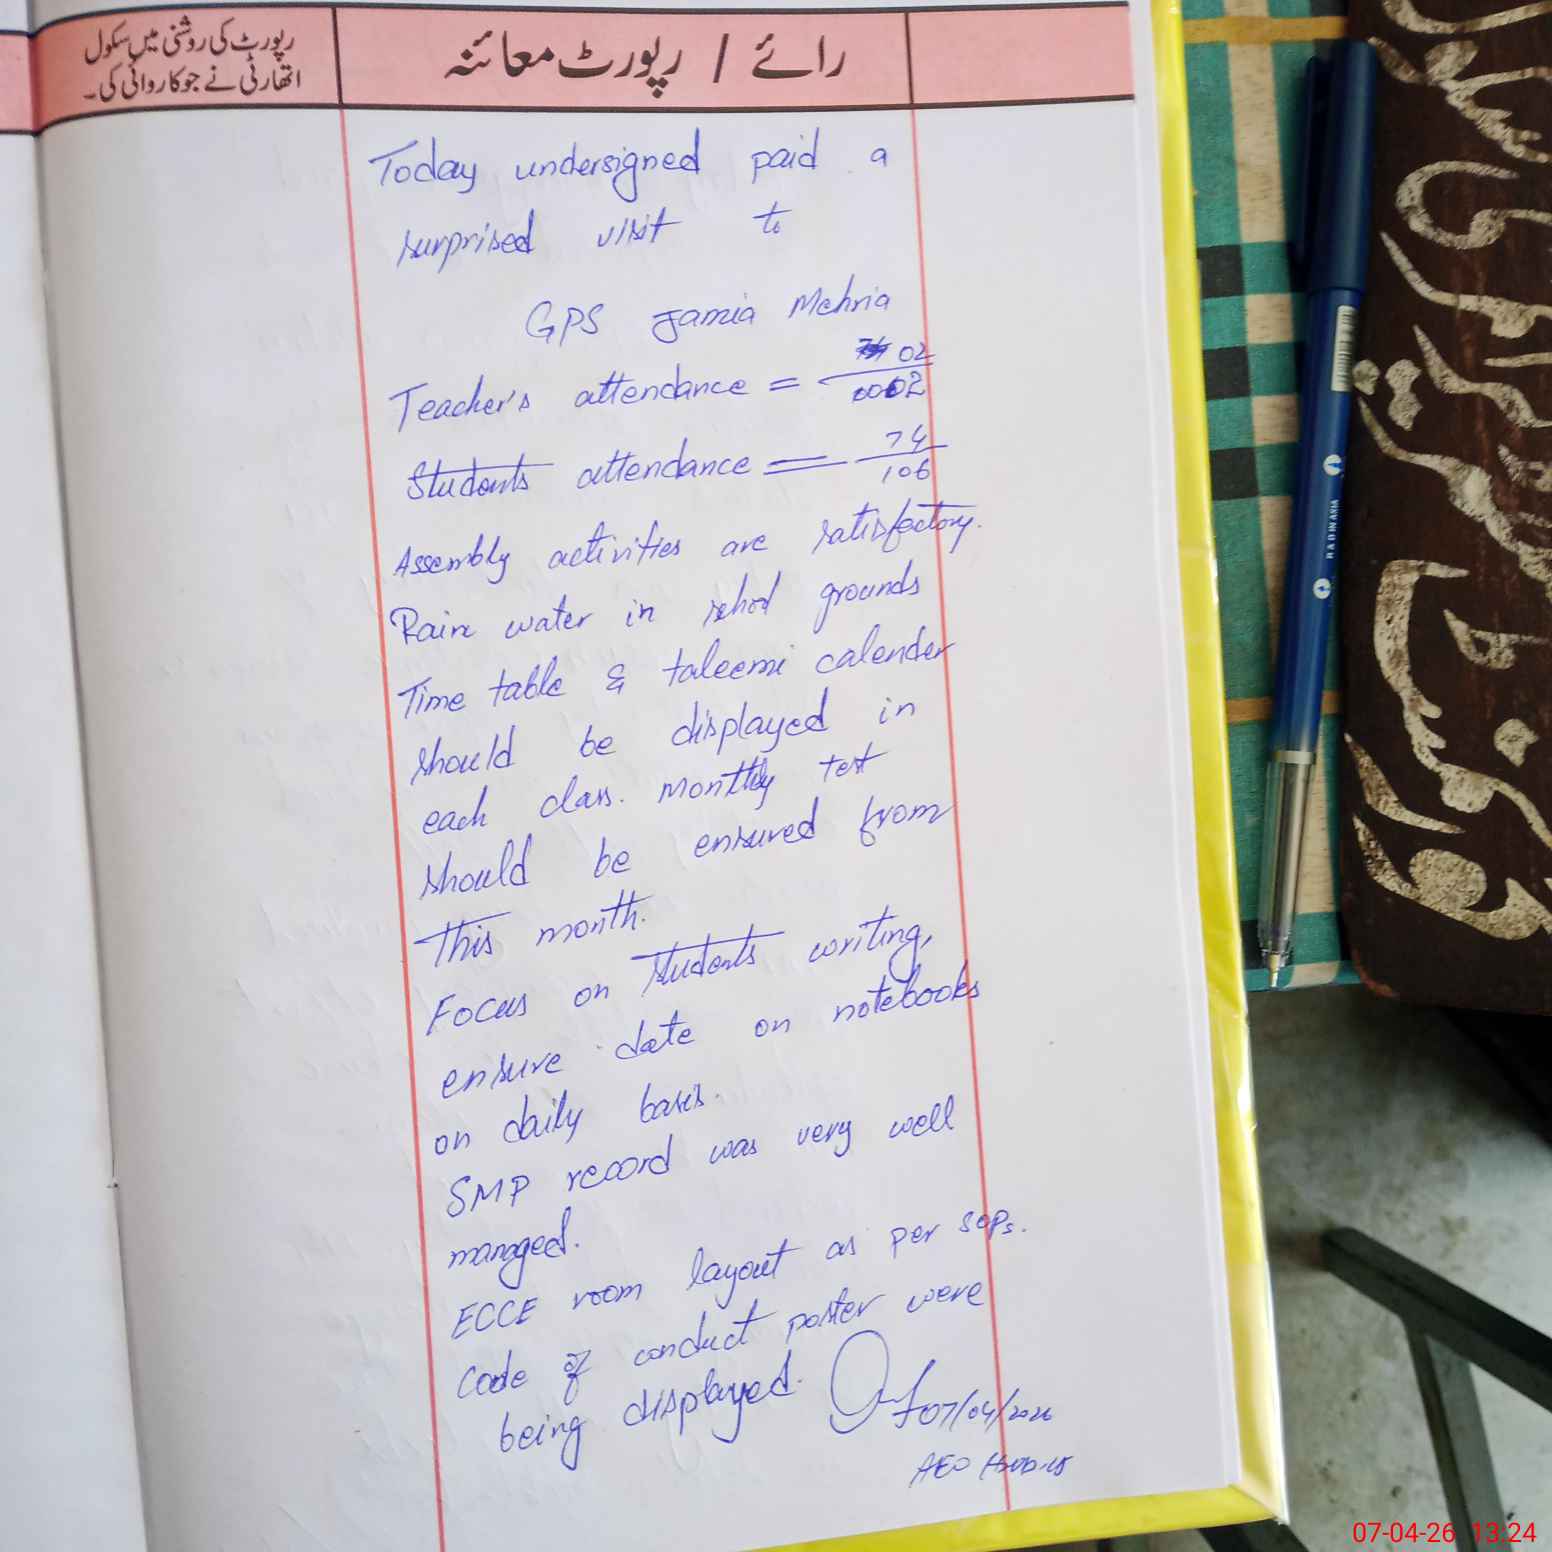 رپورٹ کی روشنی میں سکول
اتھارٹی نے جو کاروائی کی۔
رائے / رپورٹ معائنہ
Today undersigned paid a
surprised visit to
GPS Jamia Mehria
Teacher's attendance = 02
02
Students attendance = 74
106
Assembly activities are satisfactory.
Rain water in school grounds
Time table & taleemi calender
should be displayed in
each class. Monthly test
should be ensured from
this month.
Focus on students writing,
ensure date on notebooks
on daily basis.
SMP record was very well
managed.
ECCE room layout as per sops.
Code of conduct poster were
being displayed.
07/04/2026
AEO
07-04-26 13:24